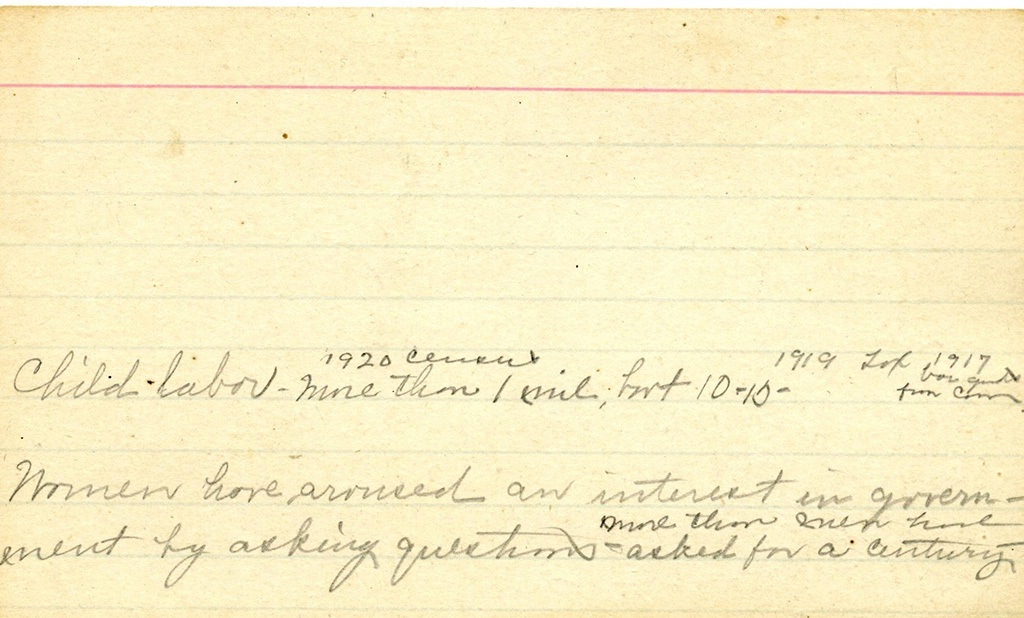 1920 census 1919 1917
Child labor - more than 1 mil, bet 10-15-
Women have aroused an interest in govern-
more than men have
ment by asking questions - asked for a century